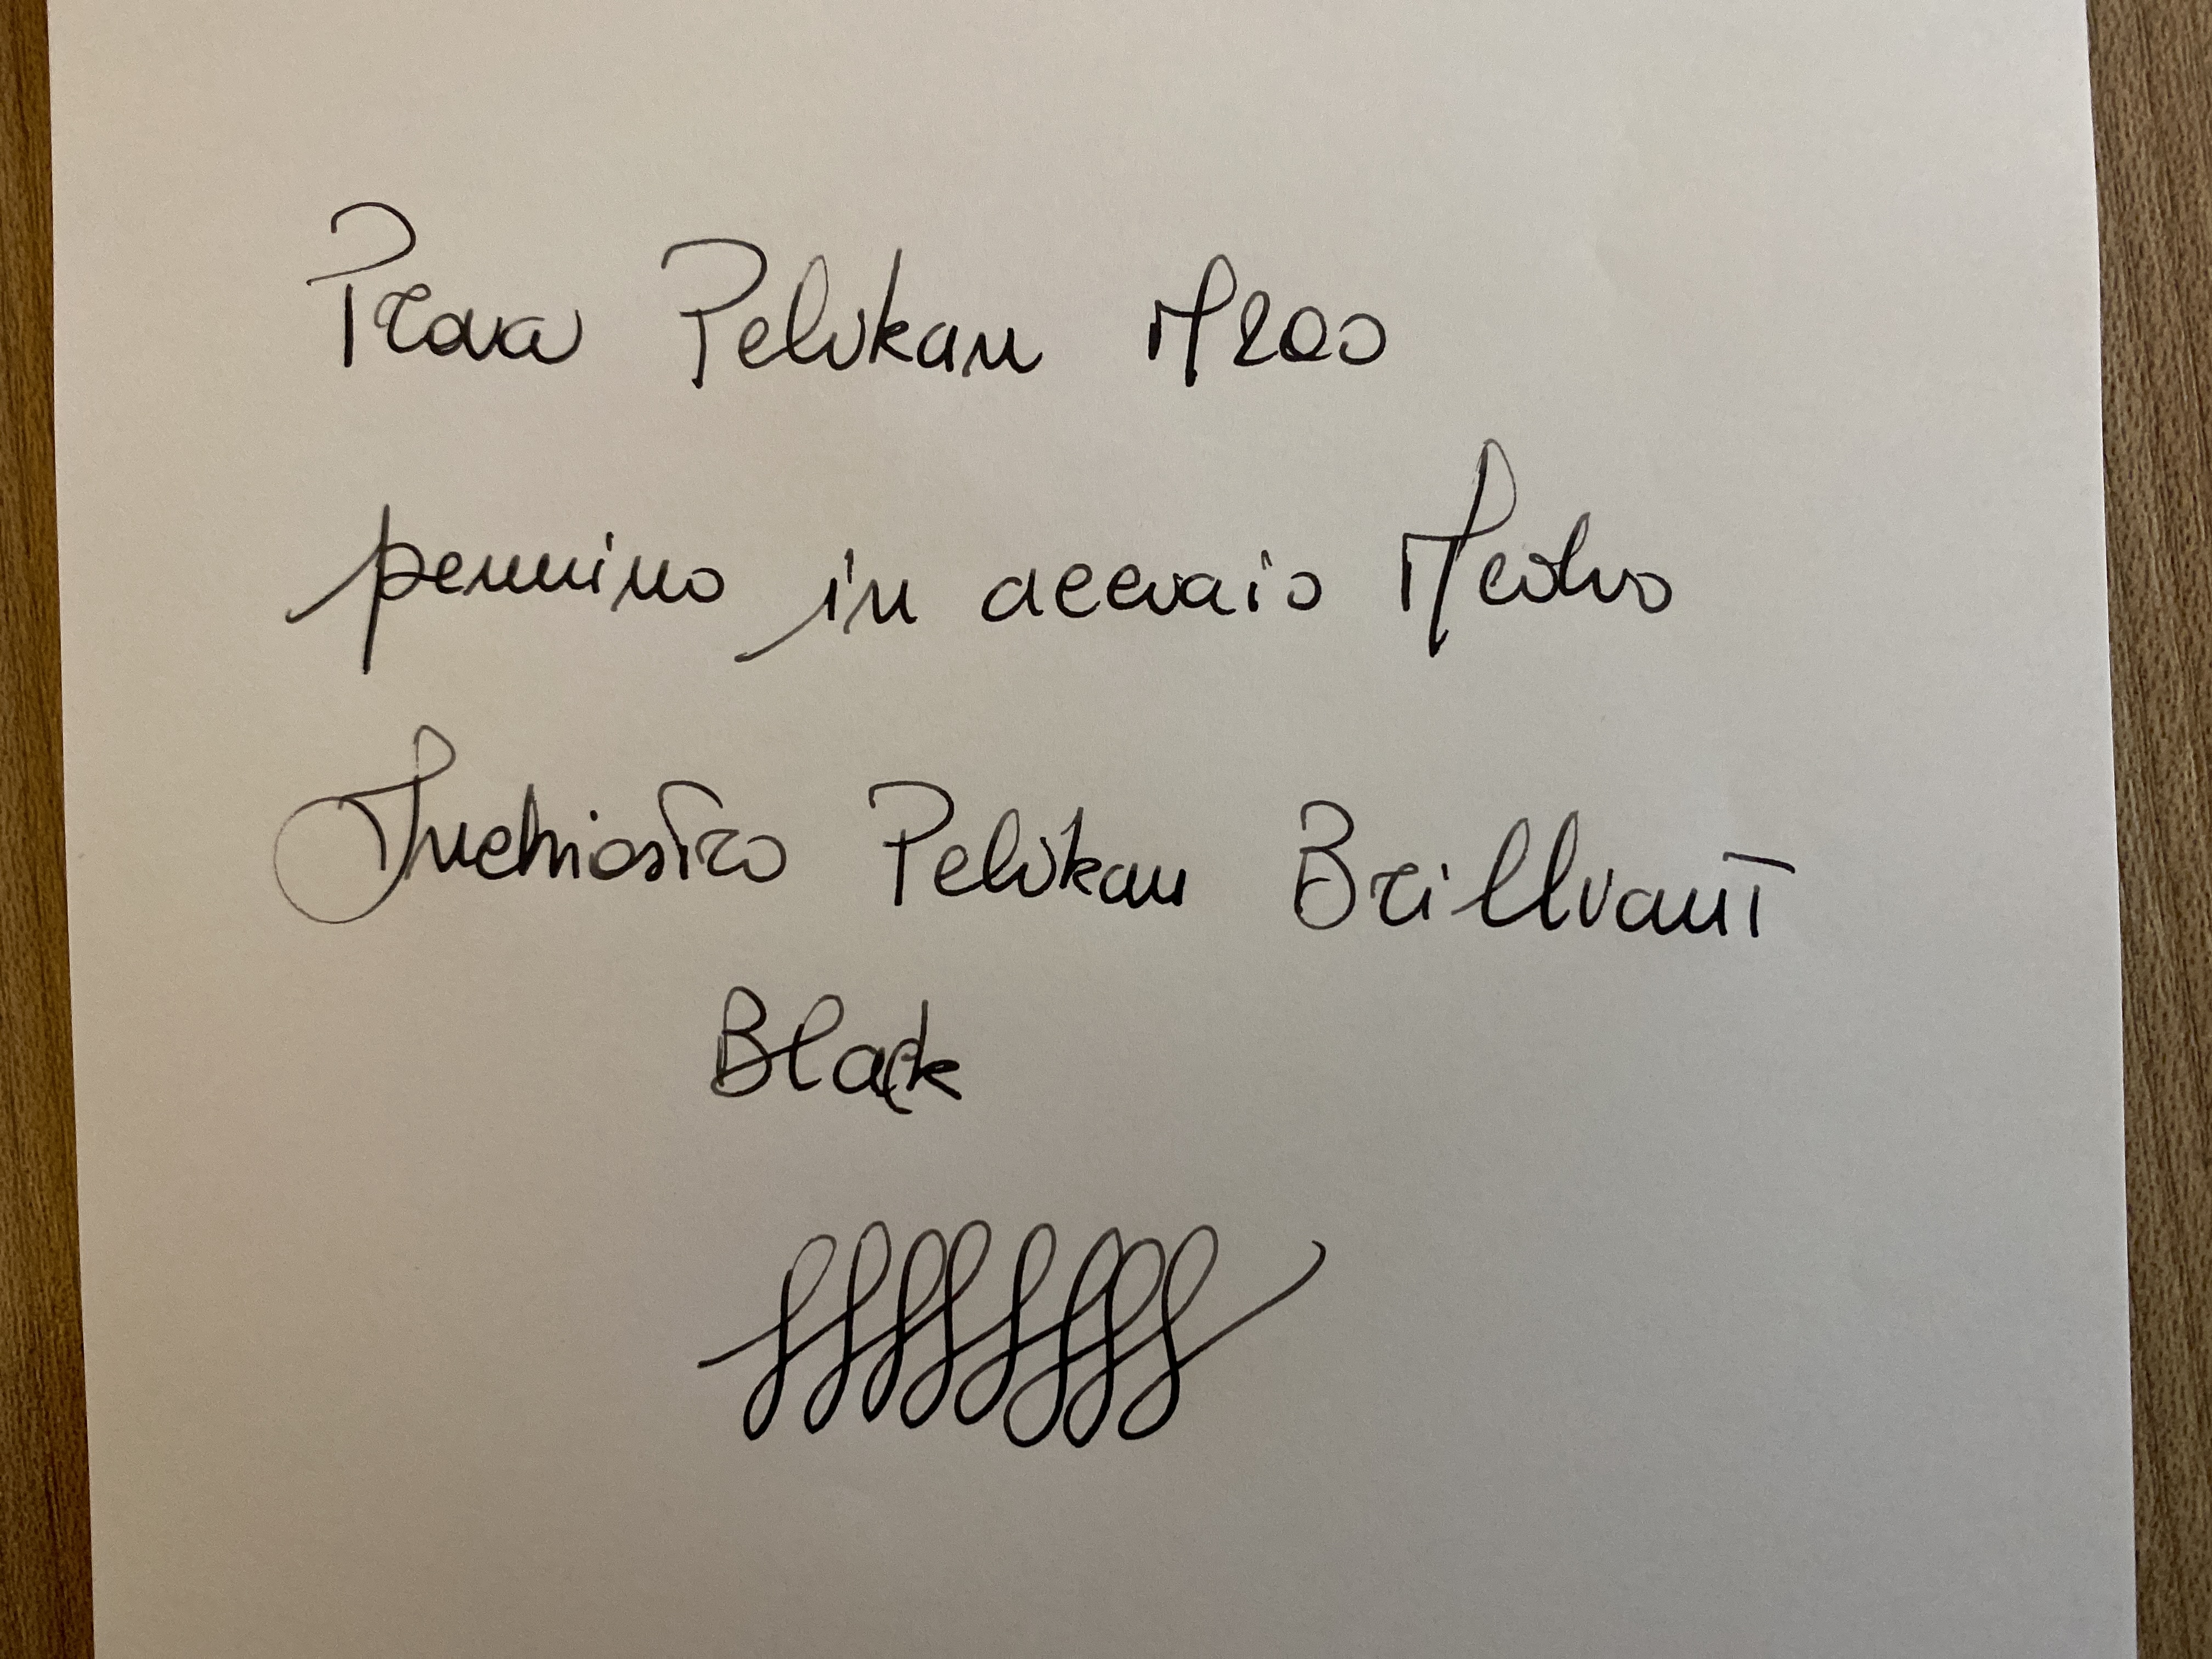 Prova Pelikan M200
pennino in acciaio Medio
Inchiostro Pelikan Brilliant
Black